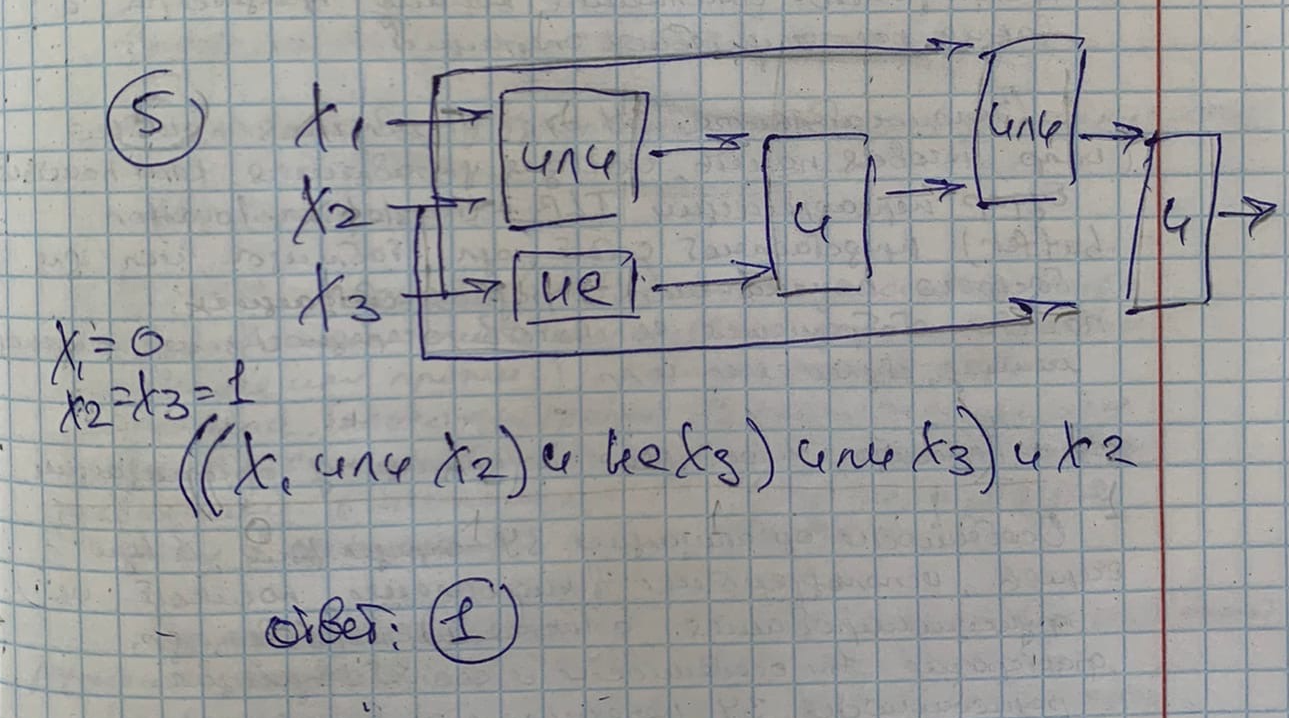 5
X1
или
или
X2
и
и
X3
не
X1 = 0
x2 = x3 = 1
((X1 или X2) и не X3) или X3) и X2
ответ: 1